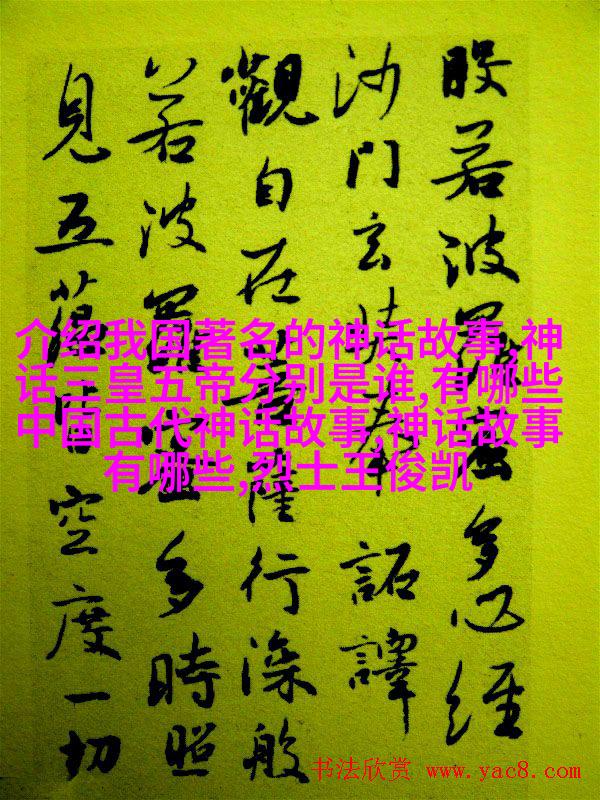 般若波羅蜜多心經
沙門玄奘奉 詔譯
觀自在菩薩行深般
若波羅蜜多時照
見五蘊皆空度一切
介绍我国著名的神话故事,神
话三皇五帝分别是谁,有哪些
中国古代神话故事,神话故事
有哪些,烈士王俊凯
书法欣赏 www.yac8.com